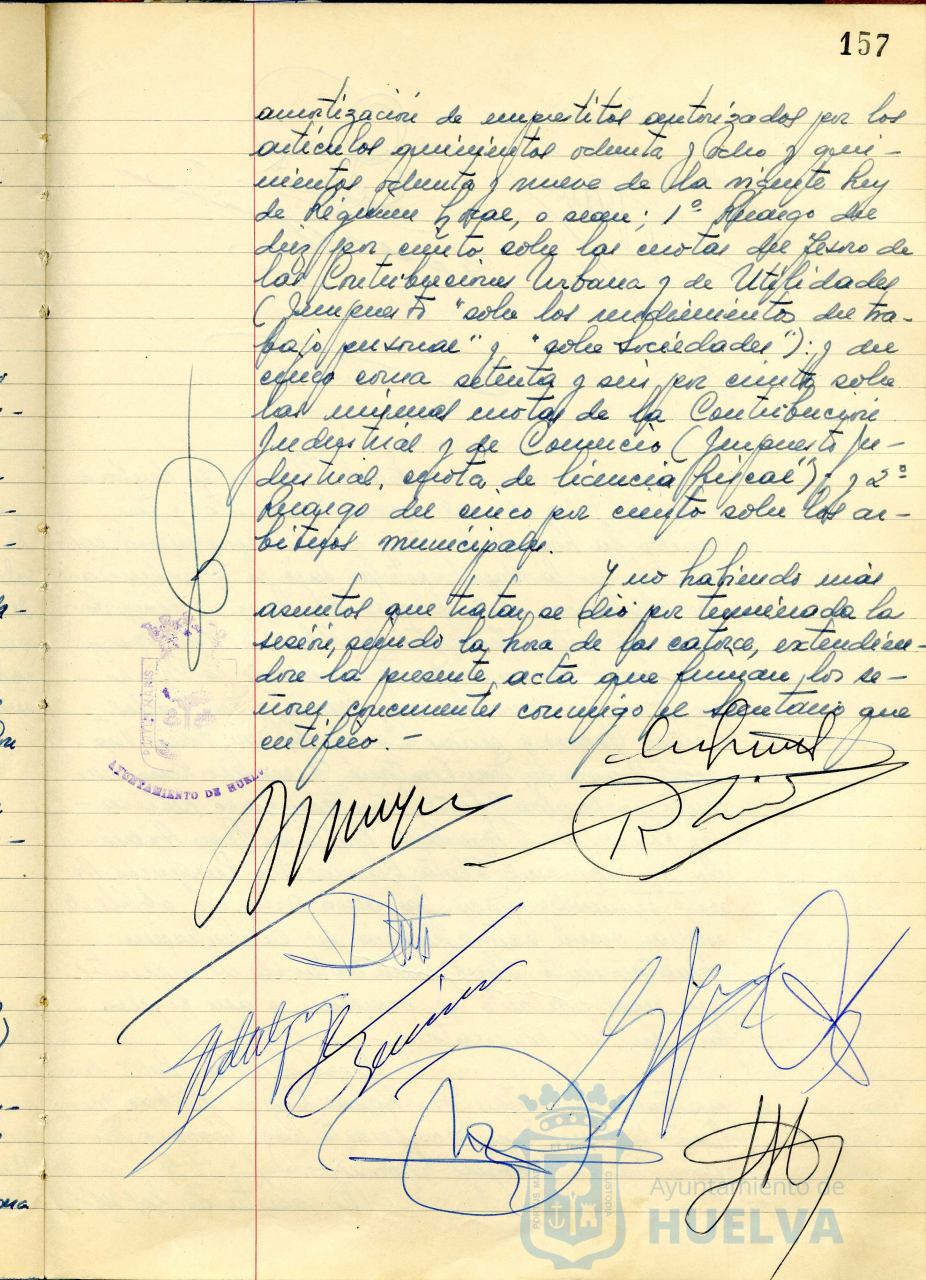 157
amortización de empréstitos autorizados por los
artículos quinientos ochenta y ocho y qui-
nientos ochenta y nueve de la vigente Ley
de Régimen Local, o sean; 1º Recargo del
diez por ciento sobre las cuotas del Tesoro de
las Contribuciones Urbana y de Utilidades
(Impuesto "sobre los rendimientos del tra-
bajo personal" y "sobre Sociedades"): y del
cinco coma setenta y seis por ciento sobre
las mismas cuotas de la Contribución
Industrial y de Comercio (Impuesto In-
dustrial, cuota de licencia fiscal); y 2º
Recargo del cinco por ciento sobre los ar-
bitrios municipales.
Y no habiendo más
asuntos que tratar, se dió por terminada la
sesión, siendo la hora de las catorce, extendién-
dose la presente acta que firman los se-
ñores concurrentes conmigo el Secretario que
certifico.-
AYUNTAMIENTO DE HUELVA
Ayuntamiento de
HUELVA